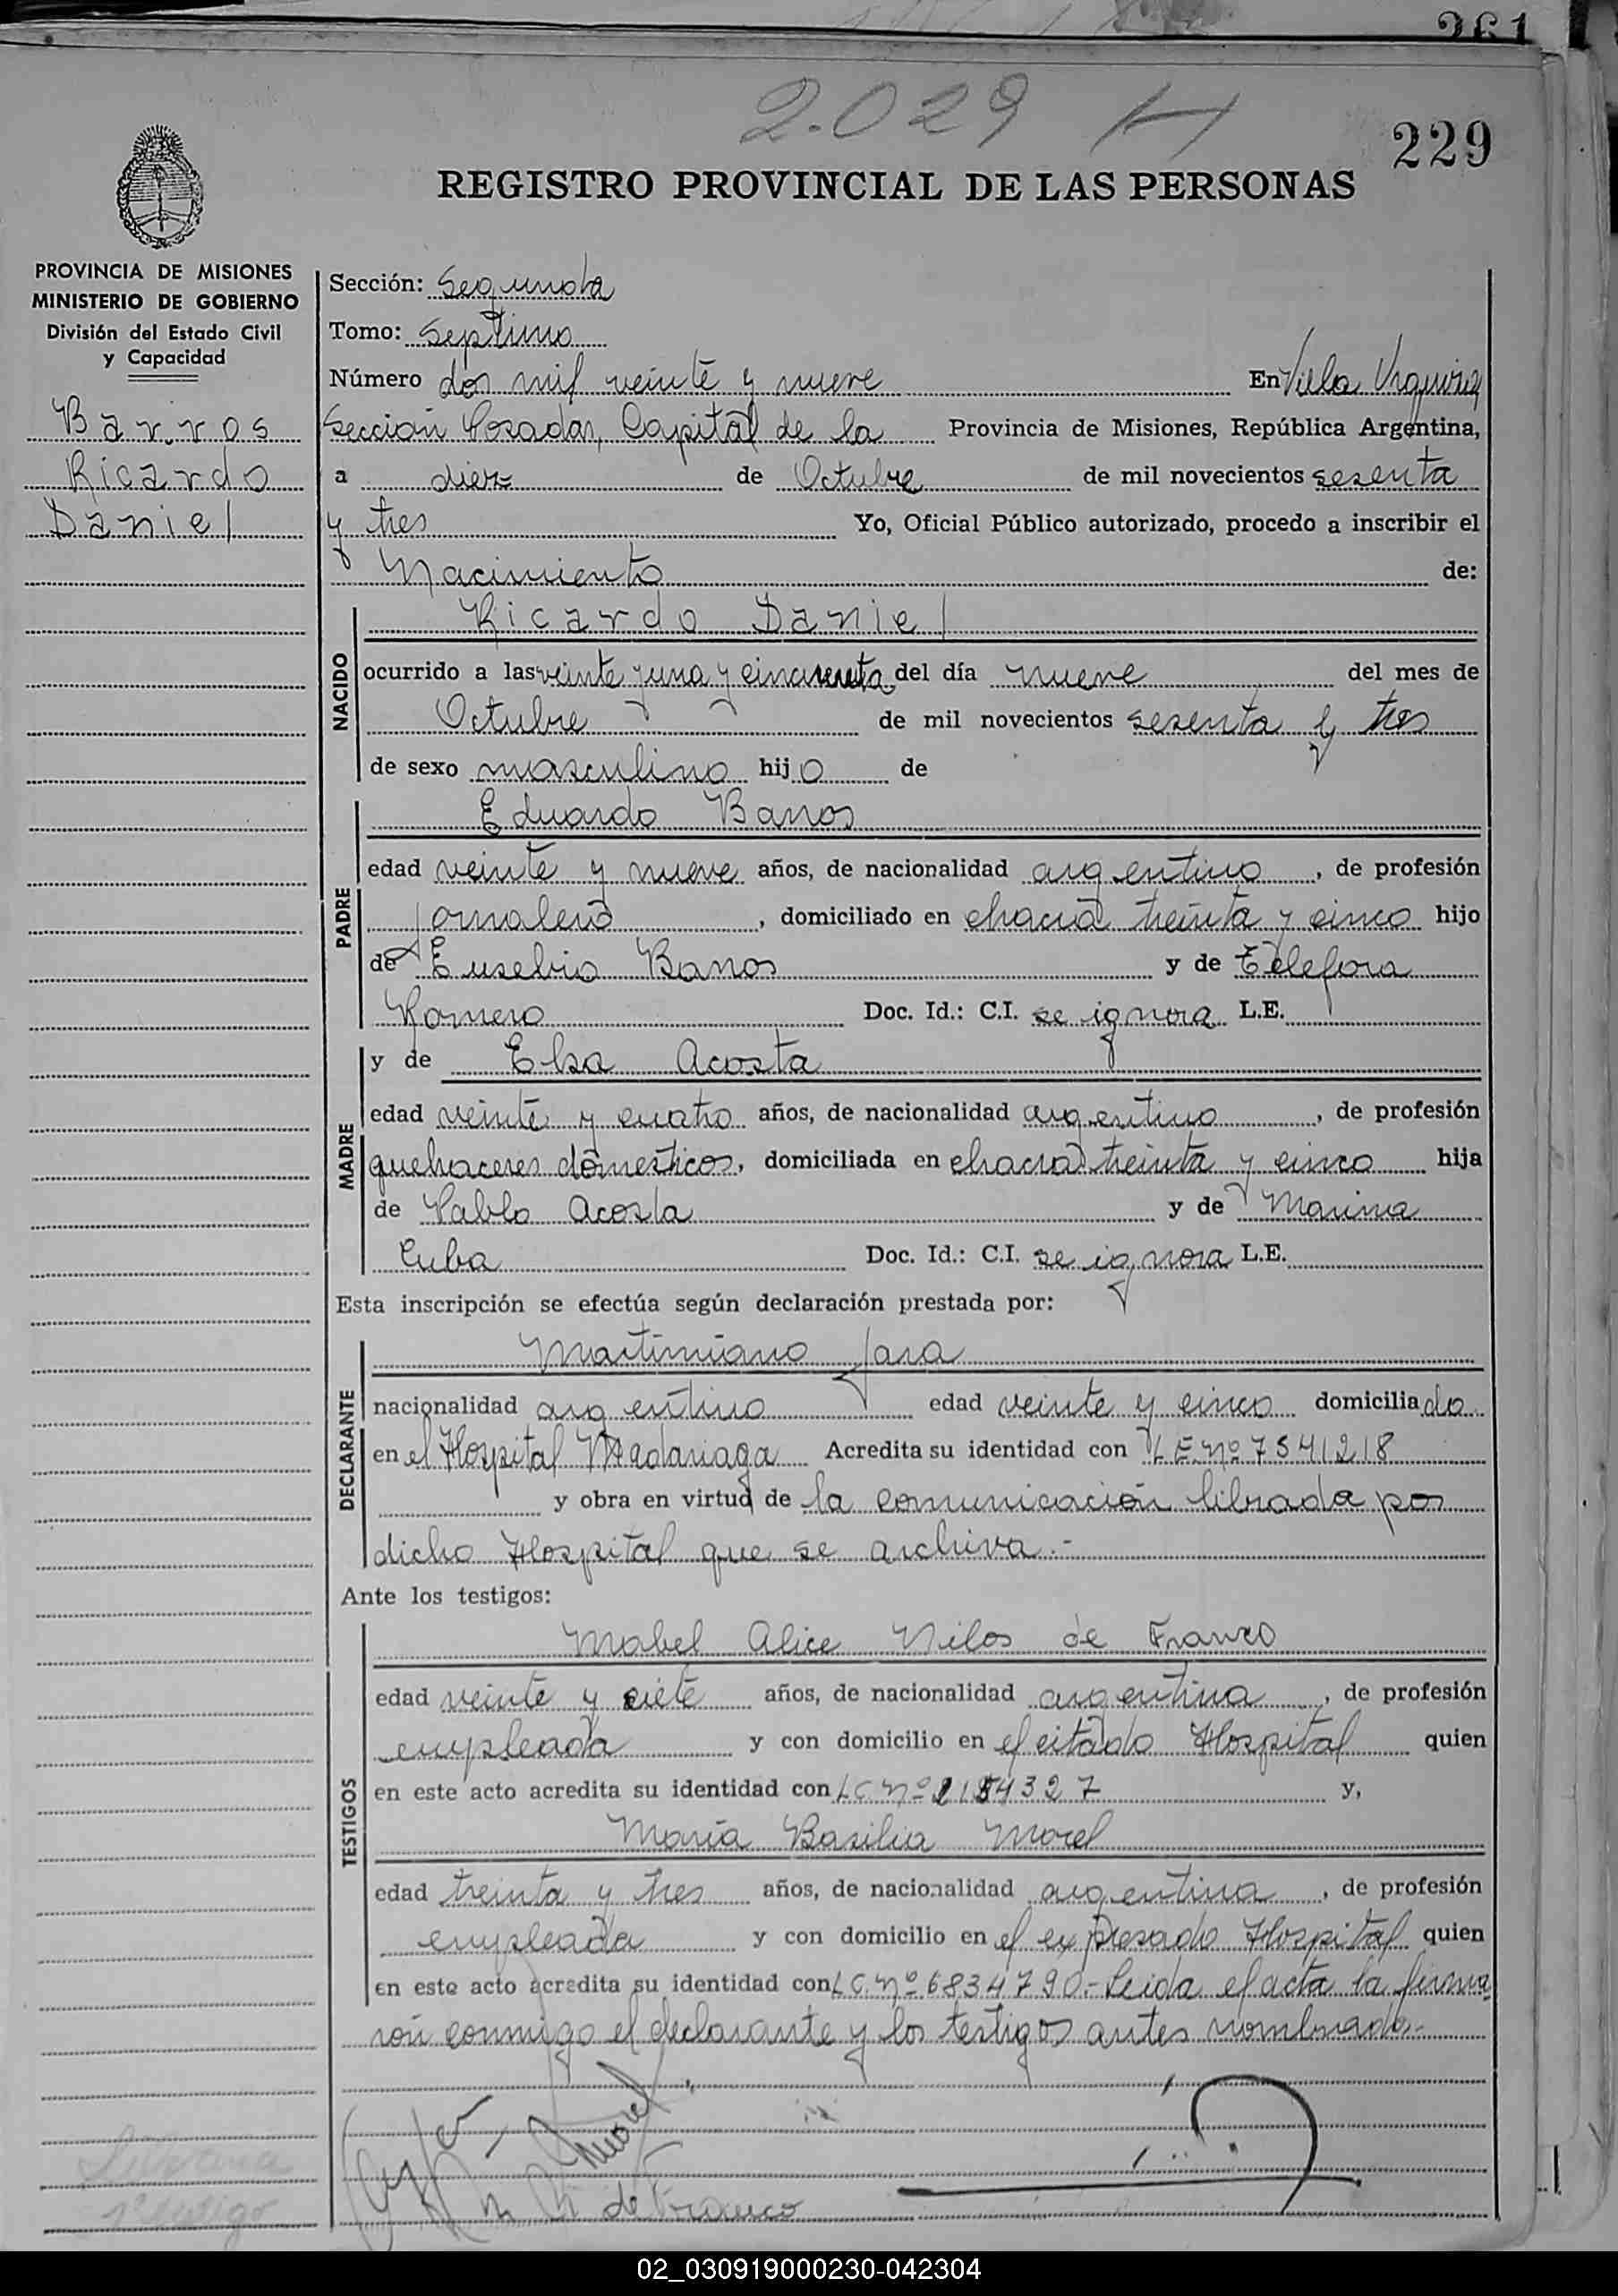 261
2.029 H
229
REGISTRO PROVINCIAL DE LAS PERSONAS
PROVINCIA DE MISIONES
MINISTERIO DE GOBIERNO
División del Estado Civil
y Capacidad
Barros
Ricardo
Daniel
Sección: Segunda
Tomo: Septimo
Número dos mil veinte y nueve En Villa Urquiza
Sección Posadas, Capital de la Provincia de Misiones, República Argentina,
a diez de Octubre de mil novecientos sesenta
y tres Yo, Oficial Público autorizado, procedo a inscribir el
Nacimiento de:
NACIDO
Ricardo Daniel
ocurrido a las veinte y una y cincuenta del día nueve del mes de
Octubre de mil novecientos sesenta y tres
de sexo masculino hijo de
PADRE
Eduardo Barros
edad veinte y nueve años, de nacionalidad argentino, de profesión
jornalero, domiciliado en chacra treinta y cinco hijo
de Eusebio Barros y de Telefora
Romero Doc. Id.: C.I. se ignora L.E.
MADRE
y de Elsa Acosta
edad veinte y cuatro años, de nacionalidad argentino, de profesión
quehaceres domesticos, domiciliada en chacra treinta y cinco hija
de Pablo Acosta y de Maxima
Cuba Doc. Id.: C.I. se ignora L.E.
Esta inscripción se efectúa según declaración prestada por:
DECLARANTE
Martimiano Jara
nacionalidad argentino edad veinte y cinco domiciliado
en el Hospital Madariaga Acredita su identidad con L E. Nº 7541218
y obra en virtud de la comunicación librada por
dicho Hospital que se archiva.-
Ante los testigos:
TESTIGOS
Mabel Alice Nilos de Franco
edad veinte y siete años, de nacionalidad argentina, de profesión
empleada y con domicilio en el citado Hospital quien
en este acto acredita su identidad con L C. Nº 4327 y,
María Basilia Morel
edad treinta y tres años, de nacionalidad argentina, de profesión
empleada y con domicilio en el expresado Hospital quien
en este acto acredita su identidad con L C. Nº 6834790.- Leida el acta la firma
ron conmigo el declarante y los testigos antes nombrados.-
Morel
de Franco
02_030919000230-042304